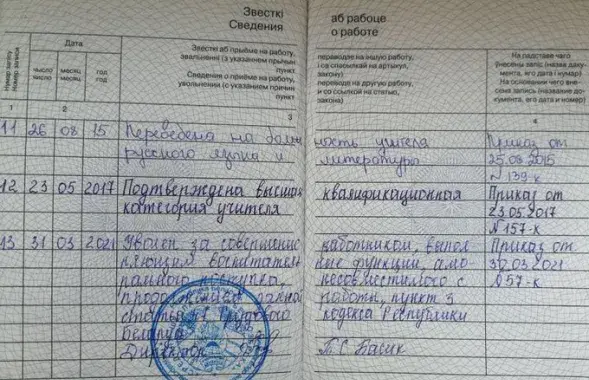 Звесткі аб рабоце
Сведения о работе
Нумар запісу
Номер записи
Дата
чысло месяц год
число месяц год
Звесткі аб прыёме на работу, пераводзе на іншую работу,
звальненні (з указаннем прычын і са спасылкай на артыкул,
пункт закону)
Сведения о приеме на работу, переводе на другую работу,
увольнении (с указанием причин и со ссылкой на статью,
пункт закона)
На падставе чаго
ўнесены запіс (назва даку-
мента, яго дата і нумар)
На основании чего вне-
сена запись (название до-
кумента, его дата и номер)
1 2 3 4
11 26 08 15 Переведена на долж ность учителя Приказ от
русского языка и литературы 25.08.2015
N 139-к
12 23 05 2017 Подтверждена высшая квалификационная Приказ от
категория учителя 23.05.2017
N 157-к
13 31 03 2021 Уволен за совершение работником, выпол Приказ от
няющим воспитатель ные функции амо 30.03.2021
рального поступка, несовместимого с N 57-к
продолжением данной работы, пункт 3
Трудового кодекса Республики
Беларусь
Директор П.С. Басик